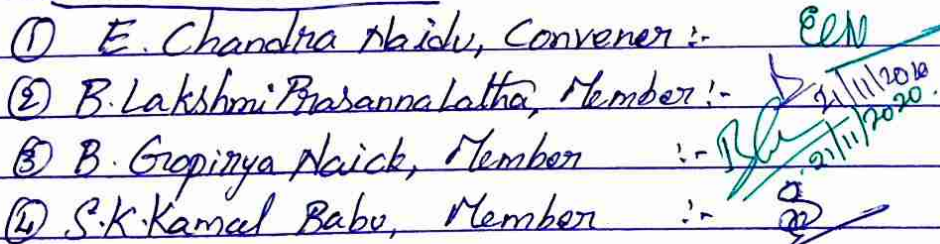 ① E. Chandra Naidu, Convener :- ECN
② B. Lakshmi Prasanna Latha, Member :- 21/11/2020
③ B. Gopinya Naick, Member :- 21/11/2020.
④ S.K. Kamal Babu, Member :-